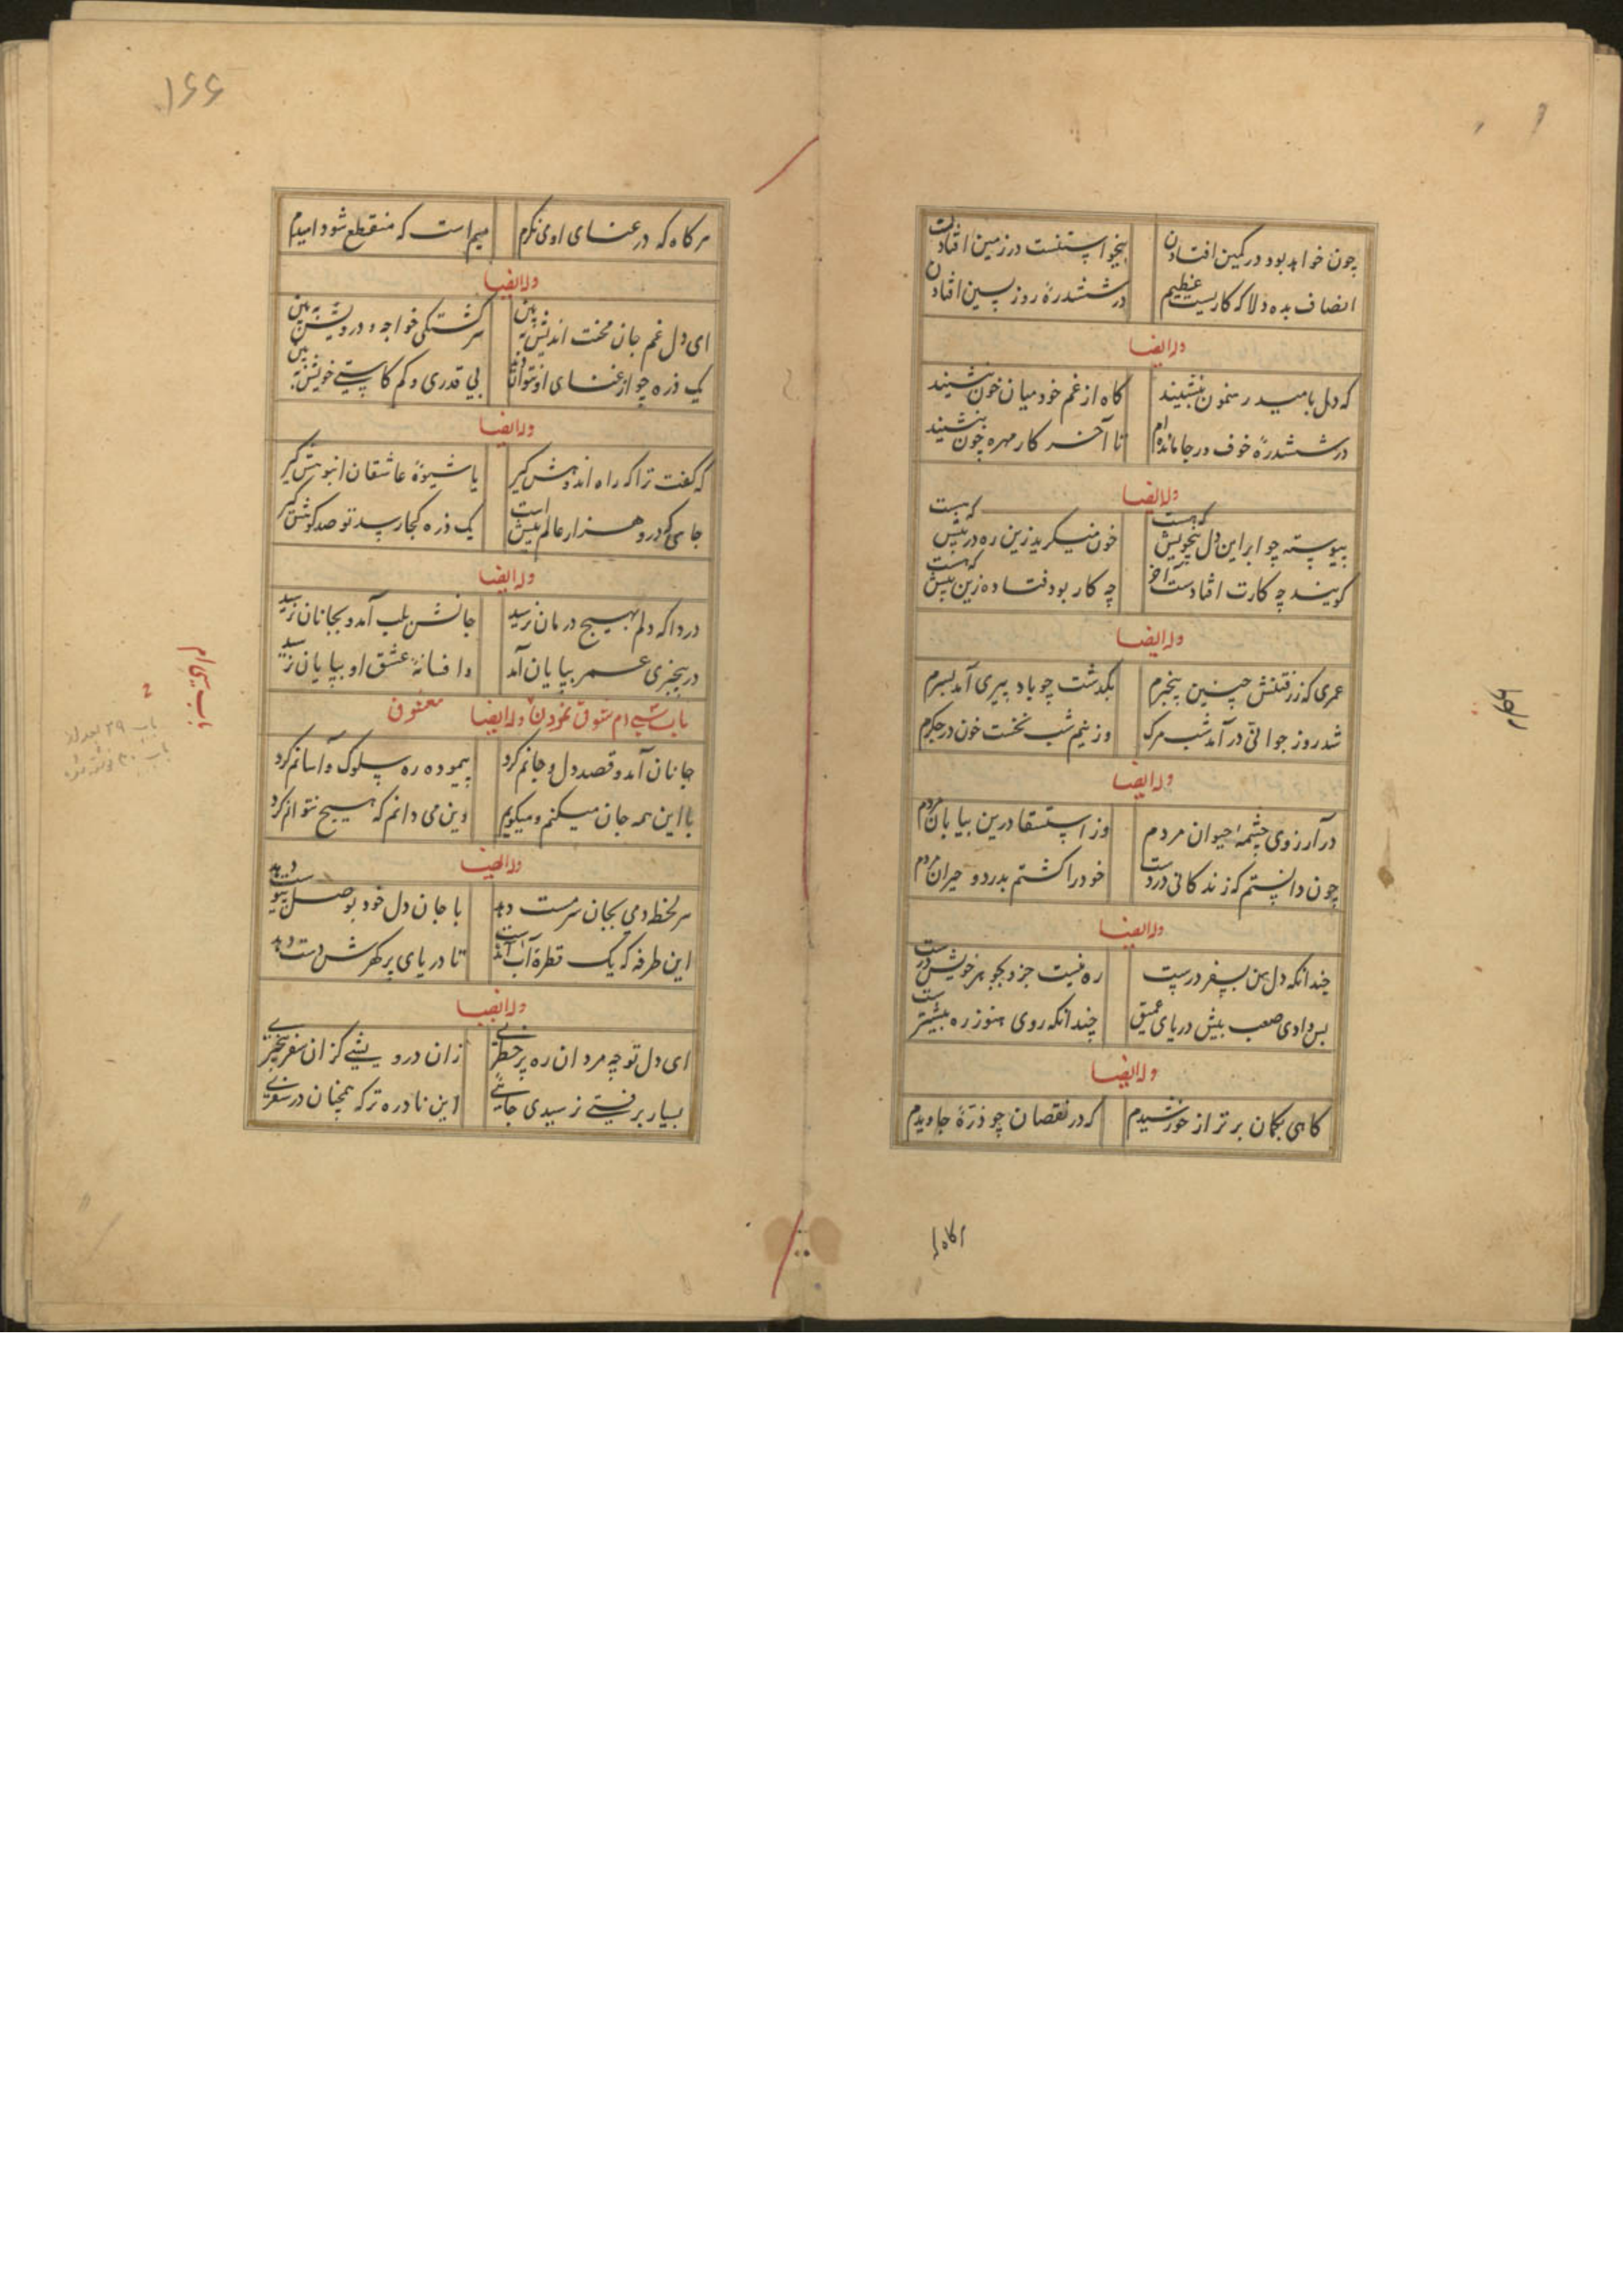 چون خواهد بود در کمین افتادن
بنخواستنست در زمین افتادن
انصاف بده دلا که کاریست عظیم
در ششدرهٔ روز پسین افتادن
وله ایضا
که دل بامید رهنمون بنشیند
کاه از غم خود میان خون بنشیند
در ششدرهٔ خوف و رجا مانده‌ام
تا آخر کار مهره چون بنشیند
وله ایضا
پیوسته چو ابر این دل بیخویش که هست
خون میکرید زین ره در پیش که هست
کویند چه کارت افتادست آخر
چه کار بود فتاده زین بیش که هست
وله ایضا
عمری که ز رفتنش چنین بیخبرم
بکذشت چو باد پیری آمد بسرم
شد روز جوانی در آمد شب مرک
وز بیم شب نخست خون در جکرم
وله ایضا
در آرزوی چشمهٔ حیوان مردم
وز استسقا درین بیابان مردم
چون دانستم که زندکانی دردست
خود را کشتم بدرد و حیران مردم
وله ایضا
چندانکه دل من بسفر درپیست
ره نیست جز و بجوهر خویش درست
بس وادی صعب بیش دریای عمیق
چندانکه روی هنوز ره بیشترست
وله ایضا
کاهی بکمان برتر از خورشیدم
که در نقصان چو ذرهٔ جاویدم
۱۶۶
هر کاه که در غنای او می نکرم
بیم است که منقطع شود امیدم
وله ایضا
ای دل غم جان محنت اندیش ببین
سرکشتکی خواجه و درویش ببین
یک ذره چو از غنای او نتوان
بی قدری و کم کاستی خویش ببین
وله ایضا
که کفت ترا که راه اندوهش کیر
یا شیوهٔ عاشقان انبوهش کیر
جایی که درو هزار عالم بیش است
یک ذره کجا رسد تو صد کوهش کیر
وله ایضا
دردا که دلم بهیچ درمان نرسید
جانش بلب آمد و بجانان نرسید
در بیخبری عمر بپایان آمد
و افسانهٔ عشق او بپایان نرسید
باب سی ام شوق نمودن وله ایضا معشوق
جانان آمد و قصد دل و جانم کرد
پیموده ره سلوک و آسانم کرد
با این همه جان میکنم و میکویم
وین می دانم که هیچ نتوانم کرد
وله ایضا
هر لحظه دمی بجان سرمست دهد
تا جان دل خود بوصل پیوست دهد
این طرفه که یک قطرهٔ آب آمده است
تا دریای پر کهرش دست دهد
وله ایضا
ای دل تو چه مرد آن ره پر خطری
زان درویشی کزان سفر بیخبری
بسیار برفتی نرسیدی جایی
این نادره تر که همچنان در سفری
باب سی ام